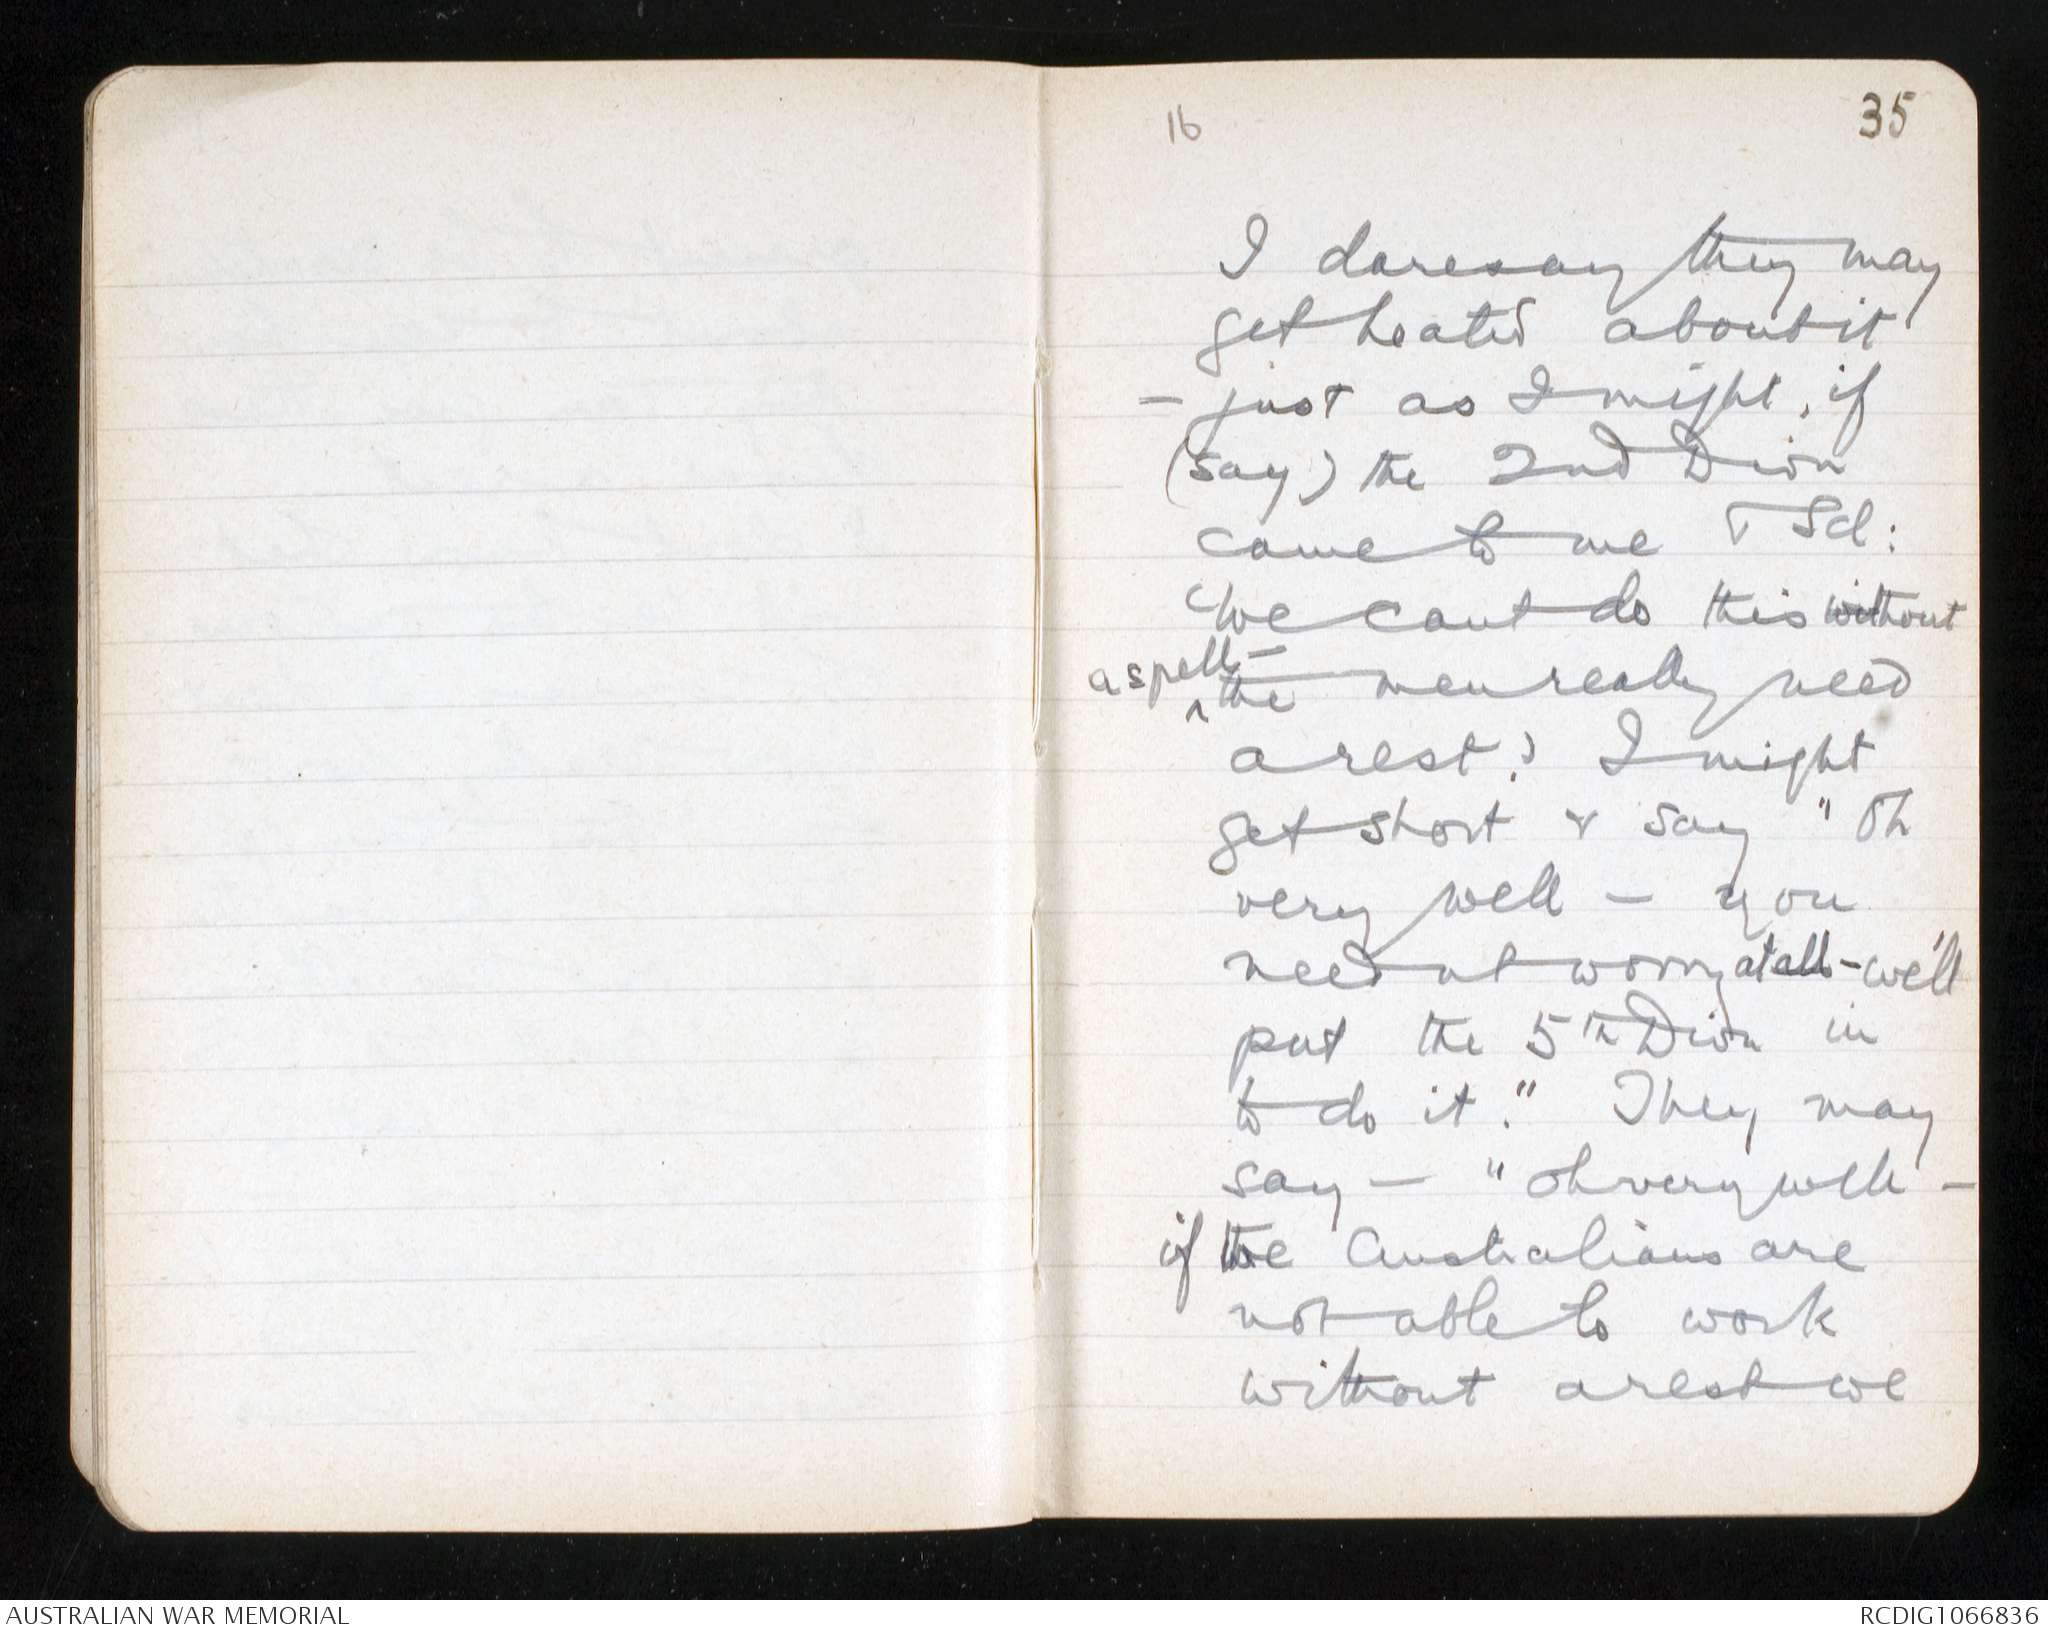 16
35
I daresay they may
get heated about it
– just as I might, if
(say) the 2nd Divn
came to me & sd:
'We cant do this without
a spell –
^the men really need
a rest.' I might
get short & say "Oh
very well – you
need nt worry at all – we'll
put the 5th Divn in
to do it." They may
say – "oh very well –
if the Australians are
not able to work
without a rest we
AUSTRALIAN WAR MEMORIAL
RCDIG1066836